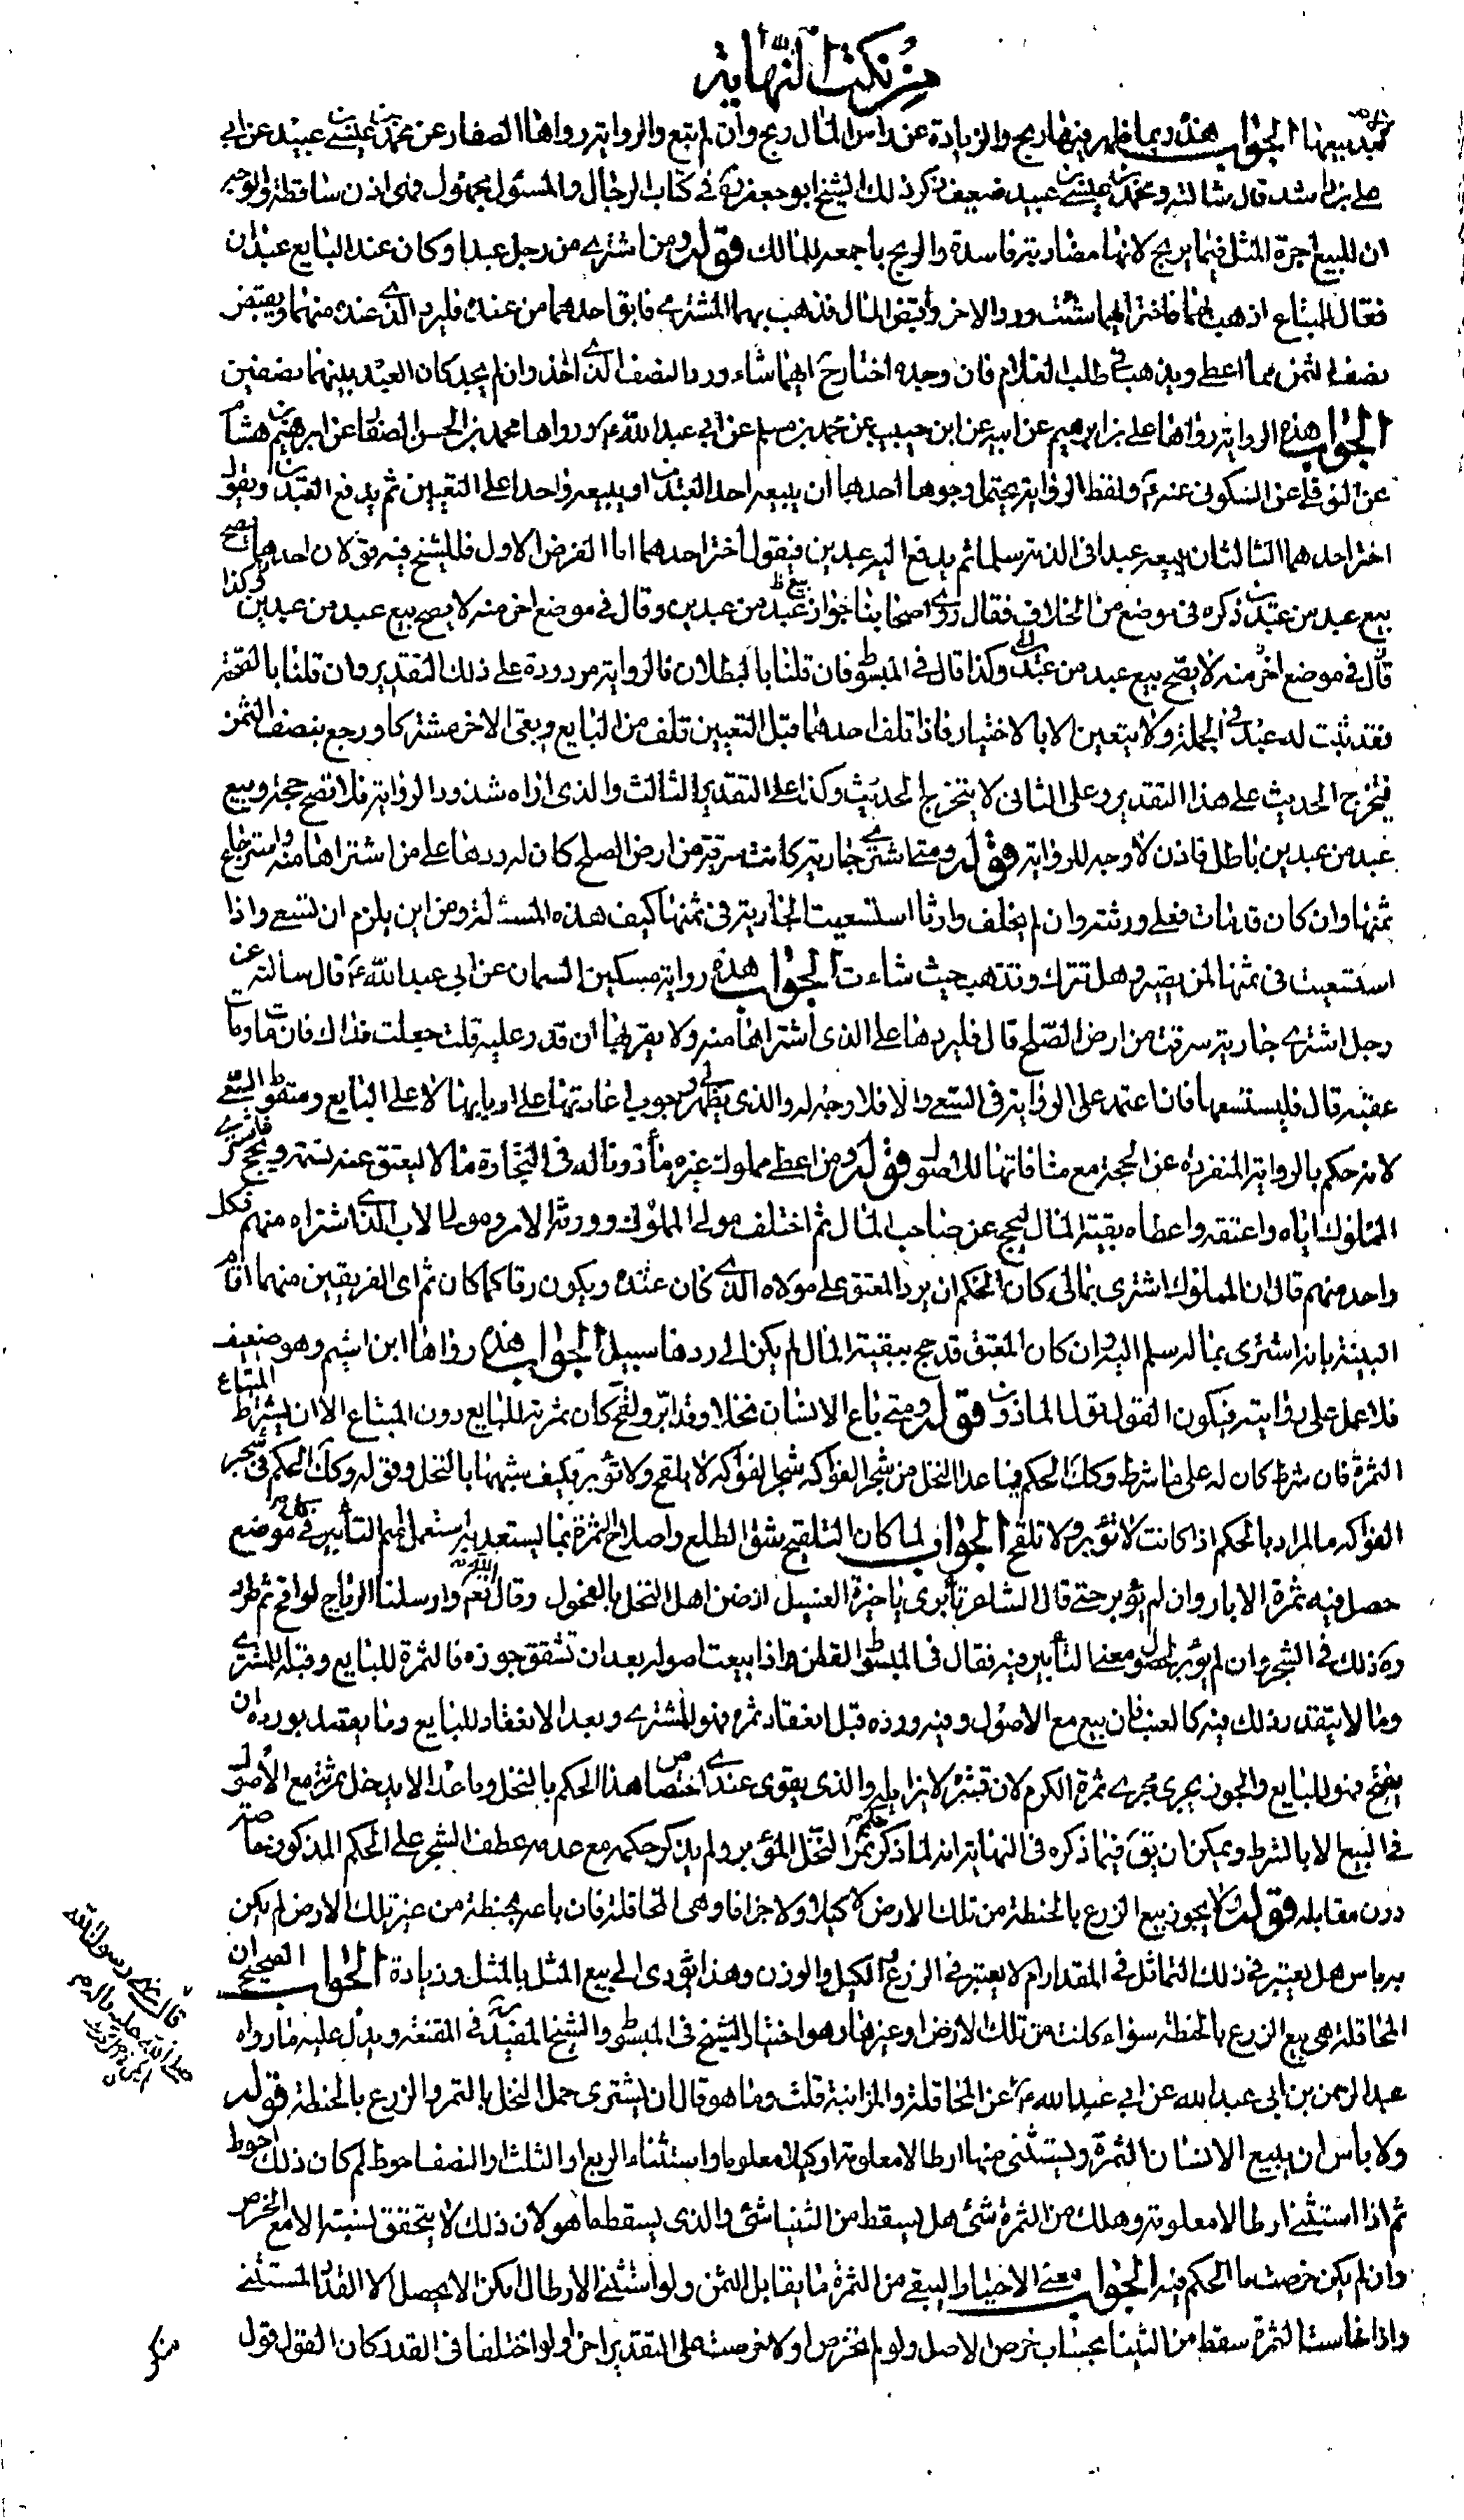 من نكت النهاية
بعد بيعها الجواب هذه ربما ظهر فيها ربح والزيادة عن راس المال ربح وان لم تبع والرواية رواها الصفار عن محمد بن عيسى بن عبيد عن ابى
على بن راشد قال سالته ومحمد بن عيسى بن عبيد ضعيف ذكر ذلك الشيخ ابو جعفر ره فى كتاب الرجال والمسئول مجهول فهى اذن ساقطة والوجه
ان للبيع اجرة المثل فيما يربح لانها مضاربة فاسدة والربح باجمعه للمالك قوله ومن اشترى من رجل عبدا وكان عند البايع عبدان
فقال للمبتاع اذهب بهما فاختر ايهما شئت ورد الاخر وقبض المال فذهب بهما المشترى فابق احدهما من عنده فليرد الذى عنده منهما ويقبض
نصف الثمن مما اعطى ويذهب فى طلب الغلام فان وجده اختار ح ايهما شاء ورد النصف الذى اخذ وان لم يجد كان العبد بينهما نصفين
الجواب هذه الرواية رواها على بن ابرهيم عن ابيه عن ابن حبيب عن محمد بن مسلم عن ابى عبد الله ع ورواها محمد بن الحسن الصفار عن ابرهيم بن هشام
عن النوفلى عن السكونى عنه ع ولفظ الرواية يحتمل وجوها احدها ان يبيعه احد العبدين او يبيعه واحدا على التعيين ثم يدفع العبدين ويقول
اختر احدهما الثالث ان يبيعه عبدا فى الذمة سلما ثم يدفع اليه عبدين فيقول اختر احدهما اما الفرض الاول فللشيخ فيه قولان احدهما يصح
بيع عبد من عبدين ذكره فى موضع من الخلاف فقال روى اصحابنا جواز بيع عبد من عبدين وقال فى موضع اخر منه لا يصح بيع عبد من عبدين وكذا
قال فى موضع اخر منه لا يصح بيع عبد من عبدين وكذا قال فى المبسوط فان قلنا بالبطلان فالرواية مردودة على ذلك التقدير وان قلنا بالصحة
فقد ثبت له عبد فى الجملة ولا يتعين الا بالاختيار فاذا تلف احدهما قبل التعيين تلف من البايع وبقى الاخر مشتركا ورجع بنصف الثمن
فيخرج الحديث على هذا التقدير وعلى الثانى لا يتخرج الحديث وكذا على التقدير الثالث والذى اراه شذوذ الرواية فلا تصح حجة وبيع
عبد من عبدين باطل فاذن لا وجه للرواية قوله ومتى اشترى جارية كانت سرقت من ارض الصلح كان له ردها على من اشتراها منه واسترجاع
ثمنها وان كان قد مات فعلى ورثته وان لم يخلف وارثا استسعيت الجارية فى ثمنها كيف هذه المسئلة ومن اين يلزم ان تسعى واذا
استسعيت فى ثمنها لمن يصير وهل تترك وتذهب حيث شاءت الجواب هذه رواية مسكين السمان عن ابى عبد الله ع قال سالته عن
رجل اشترى جارية سرقت من ارض الصلح قال فليردها على الذى اشتراها منه ولا يقربها ان قدر عليه قلت جعلت فداك فانه مات ومات
عقبه قال فليستسعها فان اعتمد على الرواية فى السعى والا فلا وجه له والذى يظهر لى وجوب اعادتها على اربابها لا على البايع وسقوط السعى
لانه حكم بالرواية المنفردة عن الحجة مع منافاتها للاصول قوله ومن اعطى مملوك غيره ماذونا له فى التجارة مالا ليعتق عنه نسمة ويحج فاشترى
المملوك اباه واعتقه واعطاه بقية المال ليحج عن صاحب المال ثم اختلف مولى المملوك وورثة الامر ومولى الاب الذى اشتراه منهم فكل
واحد منهم قال ان المملوك اشترى بمالى كان الحكم ان يرد المعتق على مولاه الذى كان عنده ويكون رقا كما كان ثم اى الفريقين منهما اقام
البينة بانه اشترى بماله سلم اليه وان كان المعتق قد حج ببقية المال لم يكن الى ردها سبيل الجواب هذه رواها ابن اشيم وهو ضعيف
فلا عمل على روايته فيكون القول قول الماذون قوله ومتى باع الانسان نخلا وقد ابر ولقح كان ثمرته للبايع دون المبتاع الا ان يشترط المبتاع
الثمرة فان شرط كان له على ما شرط وكذلك الحكم فيما عدا النخل من شجر الفواكه شجر الفواكه لا يلقح ولا تؤبر فكيف شبهها بالنخل وقوله وكذلك الحكم فى شجر
الفواكه ما المراد بالحكم اذا كانت لا تؤبر ولا تلقح الجواب لما كان التلقيح شق الطلع واصلاح الثمرة بما يستعد به استعمل اسم التأبير فى كل موضع
حصل فيه ثمرة الابار وان لم يؤبر حتى قال الشاعر تأبرى يا خيرة الفسيل اذ ضن اهل النخل بالفحول وقال الله تعم وارسلنا الرياح لواقح ثم طرد
ره ذلك فى الشجر وان لم يؤبر لحصول معنى التأبير فيه فقال فى المبسوط القطن واذا بيعت اصوله بعد ان تشقق جوزه فالثمرة للبايع وقبله للمشترى
وما لا يتقدر ذلك فيه كالعنب فان بيع مع الاصول وفيه ورده قبل انعقاد ثمره فهو للمشترى وبعد الانعقاد للبايع وما يقصد بورده ان
يفتح فهو للبايع والجوز يجرى مجرى ثمرة الكرم لان قشره لا يزايله والذى يقوى عندى اختصاص هذا الحكم بالنخل وما عداه لا يدخل ثمرته مع الاصول
فى البيع الا بالشرط ويمكن ان يق فيما ذكره فى النهاية انه لما ذكر حكم ثمر النخل المؤبر ولم يذكر حكمه مع عدمه عطف الشجر على الحكم المذكور خاصة
دون مقابله قوله لا يجوز بيع الزرع بالحنطة من تلك الارض لا كيلا ولا جزافا وهى المحاقلة فان باعه بحنطة من غير تلك الارض لم يكن
به باس هل يعتبر فى ذلك التماثل فى المقدار ام لا يعتبر فى الزرع الكيل والوزن وهذا يؤدى الى بيع المثل بالمثل وزيادة الجواب الصحيح ان
المحاقلة هى بيع الزرع بالحنطة سواء كانت من تلك الارض او غيرها وهو اختيار الشيخ فى المبسوط والشيخ المفيد ره فى المقنعة ويدل عليه ما رواه
عبد الرحمن بن ابى عبد الله عن ابى عبد الله ع عن المحاقلة والمزابنة قلت وما هو قال ان يشترى حمل النخل بالتمر والزرع بالحنطة قوله
ولا باس ان يبيع الانسان الثمرة ويستثنى منها ارطالا معلومة او كيلا معلوما واستثناء الربع او الثلث او النصف احوط لم كان ذلك احوط
ثم اذا استثنى ارطالا معلومة وهلك من الثمرة شئ هل يسقط من الثنيا شئ والذى يسقط ما هو لان ذلك لا يتحقق نسبته الا مع الخرص
وان لم يكن خرصت ما الحكم فيه الجواب معنى الاحتياط ليبقى من الثمرة ما يقابل الثمن ولو استثنى الارطال امكن الا يحصل الا القدر المستثنى
واذا خاست الثمرة سقط من الثنيا بحساب خرص الاصل ولو لم تخرص اولا خرصت على التقدير اخرا ولو اختلفا فى القدر كان القول قول
قال نهى رسول الله
صلى الله عليه واله